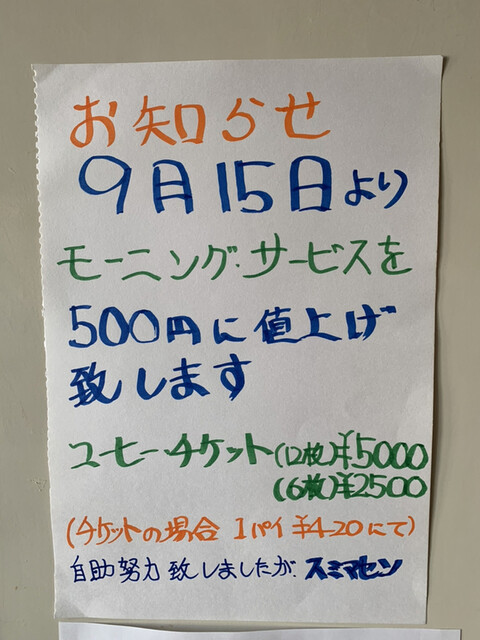 お知らせ
9月15日より
モーニング・サービスを
500円に値上げ
致します
コーヒーチケット(12枚)¥5000
(6枚)¥2500
(チケットの場合 1パイ ¥420にて)
自助努力致しましたが、スミマセン